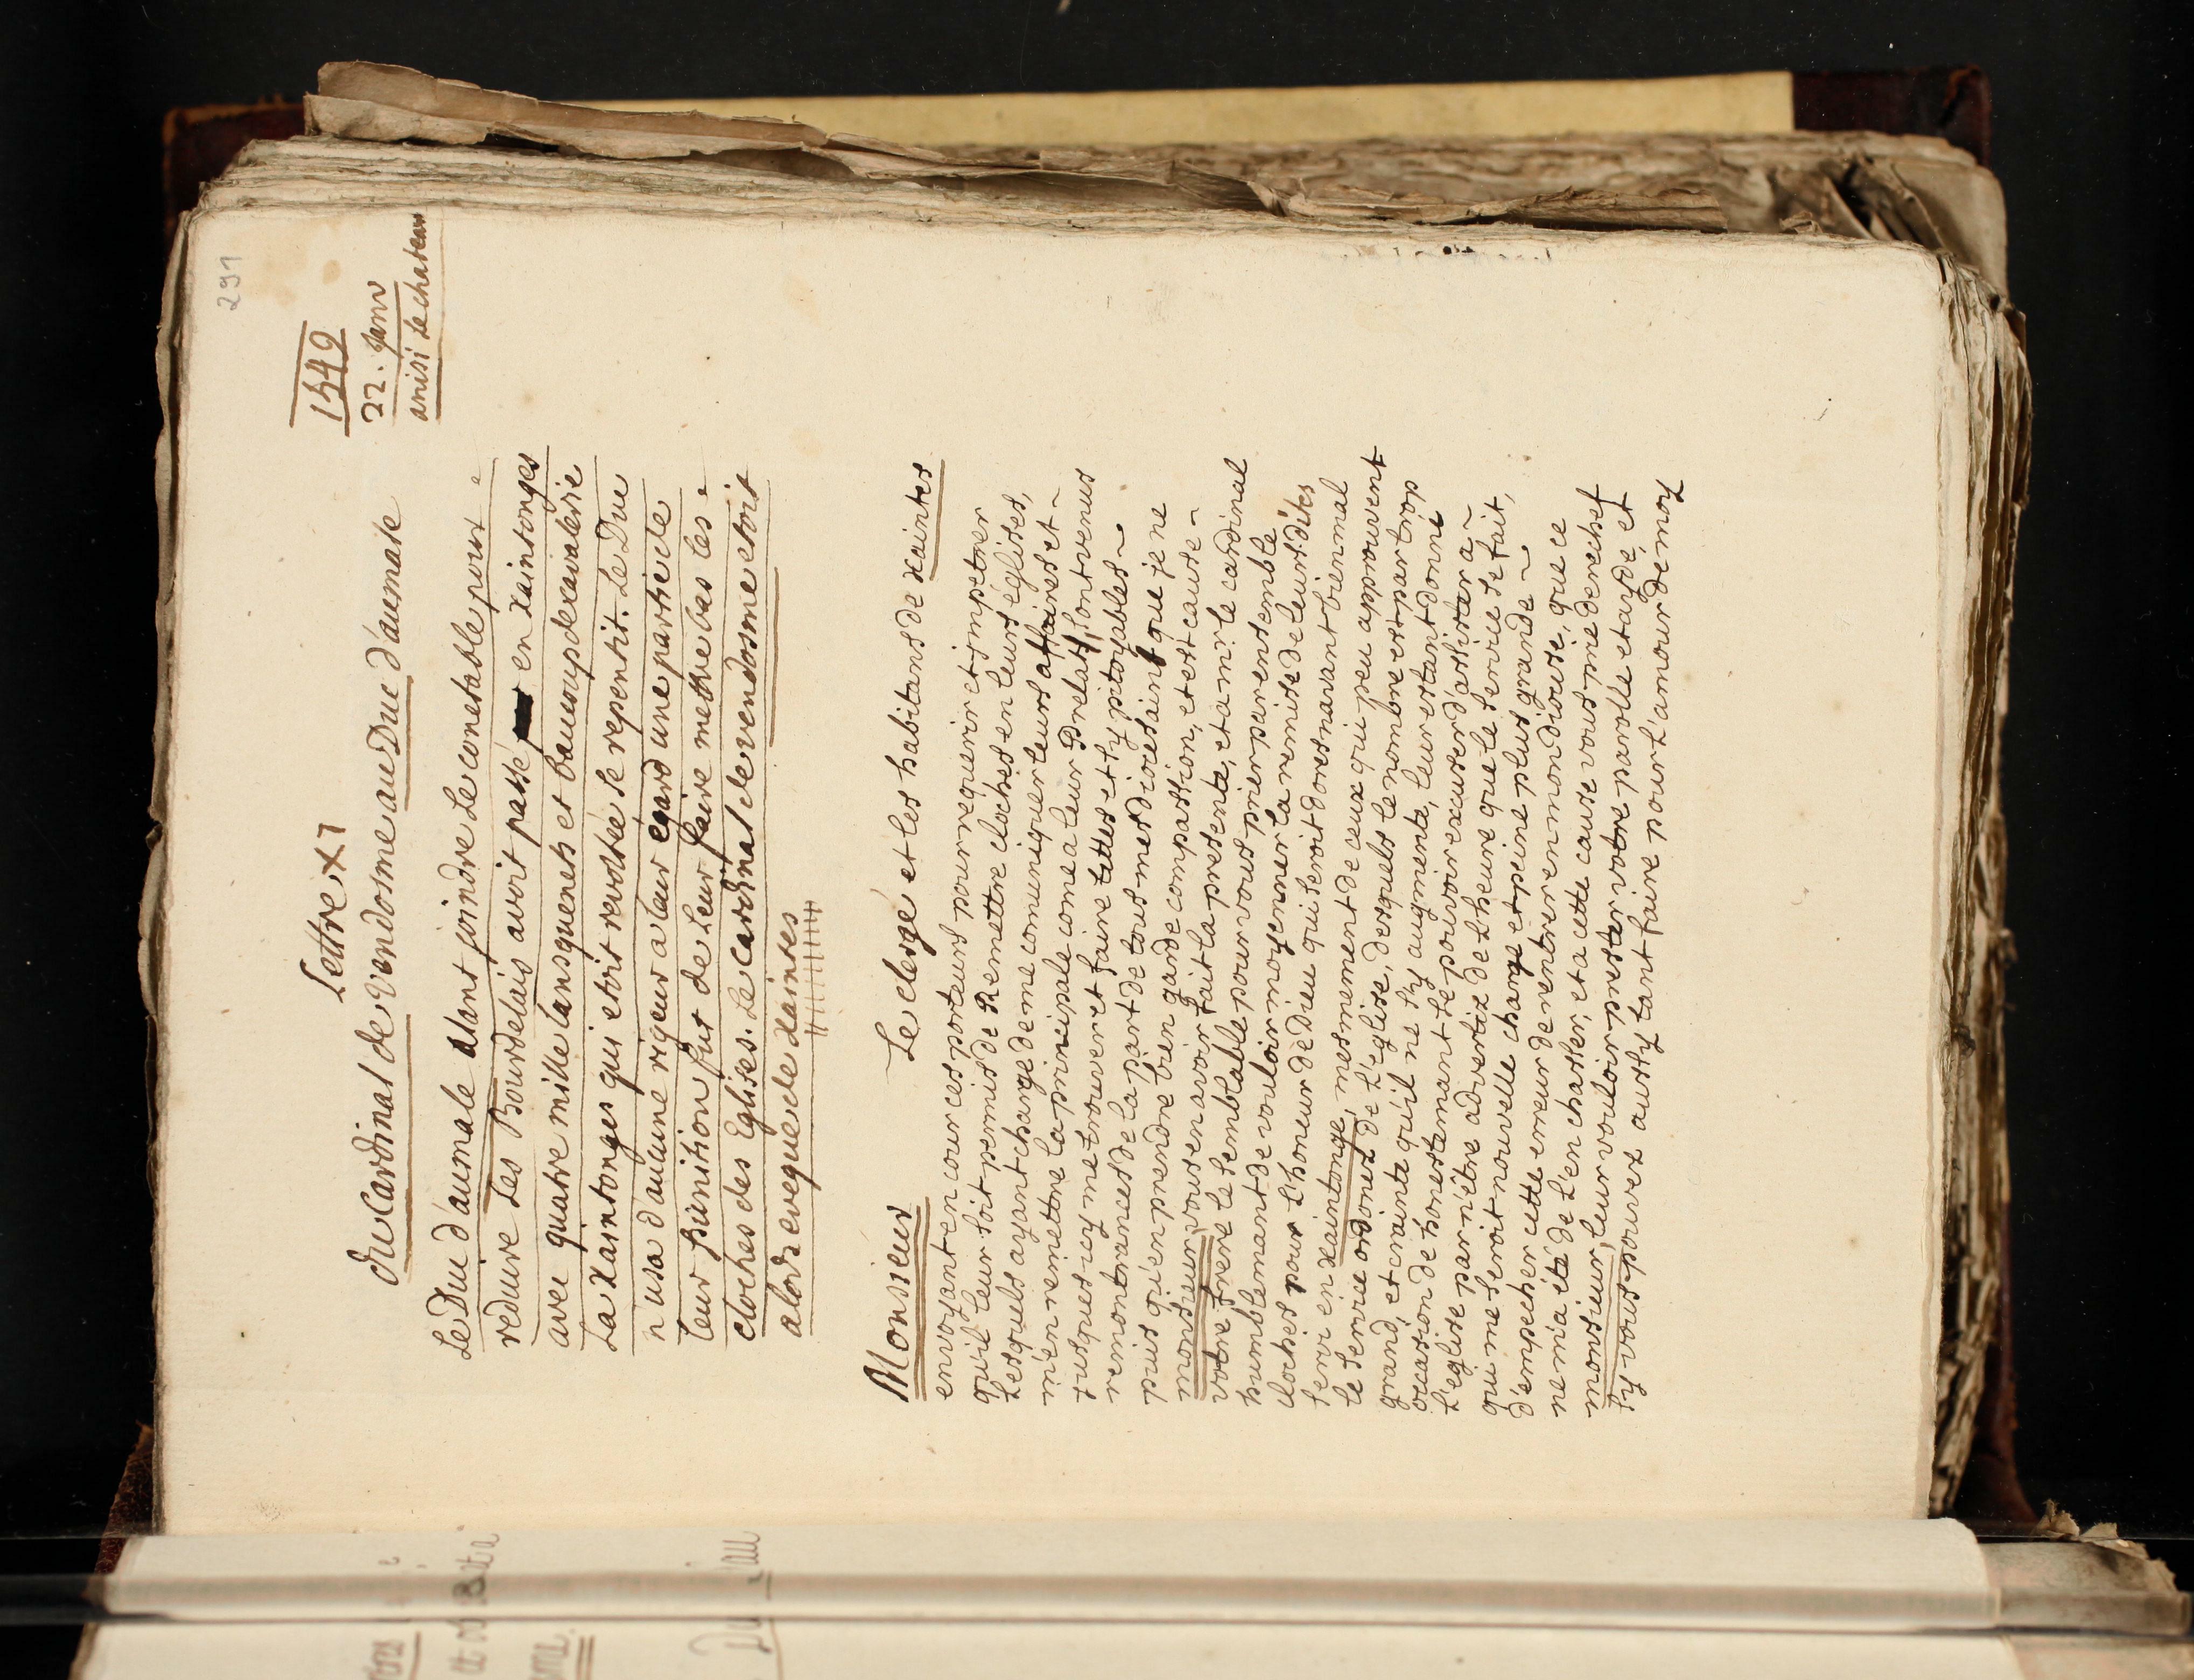 291
1549
Lettre XI
22. Janv
Du Cardinal de Vendosme au Duc d'aumale
anisi le chateau
Le Duc d'aumale alant joindre Le conetable pour
reduire Les Bourdelais avoit passé en Xaintonges
avec quatre mille lansquenets et baucoup de cavalerie
La Xaintonges qui etoit revoltée se repentit. Le Duc
n'usa d'aucune rigeur a leur egard une partie de
leur punition fut de Leur faire mettre bas les
cloches des Eglises. Le cardinal de vendosme etoit
alors eveque de Xaintes
Monsieur
Le clergé et les habitans de xaintes
envoyant en cour ces porteurs pour requerir et impetrer
qu'il leur soit permis de Remettre cloches en leurs eglises,
Lesquels ayant charge de me comuniquer leurs affaires et
m'en remettre la principale come a leur Prelat, sont venus
jusques icy me trouver et faire telles et sy pitoyables
remontrances de la part de tous mes diocesains que je ne
puis qu'en prendre bien garde compassion, et est cause
monsieur, vous en avoir fait la presente, et a mr. le cardinal
votre frere le semblable pour vous prier par ensemble
humblemant de vouloir moyenner la remise de leurs dites
cloches pour L'honeur de Dieu qui seroit doresnavant bien mal
servi en xaintonge, mesmement de ceux qui peu approuvent
le service ordonez de L'eglise, desquels le nombre est par trop
grand, et crainte qu'il ne s'y augmente, leur estant donné
occasion de honestemant se pouvoir excuser d'assister a
L'eglise par n'être advertiz de L'heure que le service se fait,
qui me seroit nouvelle charge et peine plus grande
d'empecher cette erreur de rentrer en mon diocese, que ce
ne m'a eté de L'en chasser, et a cette cause vous prie derechef
monsieur, leur vouloir prester votre parolle et ayde, et
s'y vous pouvez aussy tant faire pour L'amour de moy